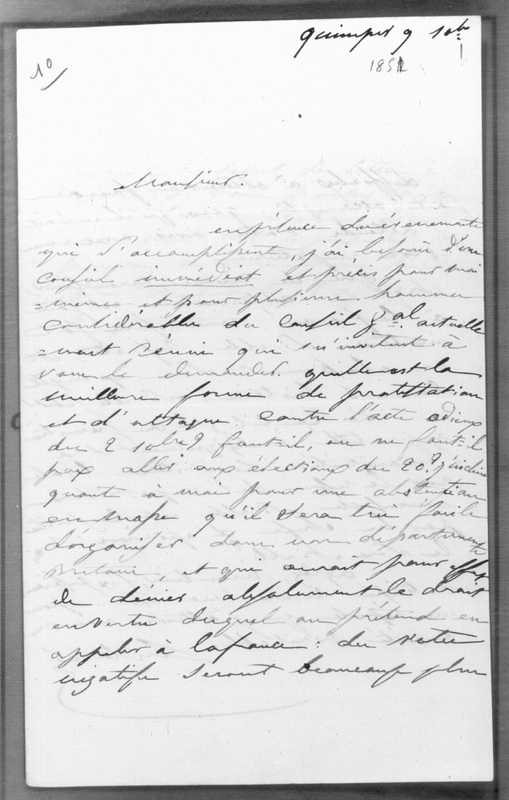 Quimper 9 10bre
1851
1°
Monsieur.
en présence des évènements
qui s'accomplissent, j'ai besoin d'un
conseil immédiat et précis pour moi
=même et pour plusieurs hommes
considérables du conseil gal. actuelle
=ment réuni qui m'invitent à
vous le demander quelle est la
meilleure forme de protestation
et d'attaque contre l'acte odieux
du 2 10bre? faut-il, ou ne faut-il
pas aller aux élections du 20? j'incline
quant à moi pour une abstention
en masse qu'il sera très facile
d'organiser dans nos départements
Bretons, et qui aurait pour effet
de dénier absolument le droit
en vertu duquel on prétend en
appeler à la france: des votes
négatifs seront beaucoup plus